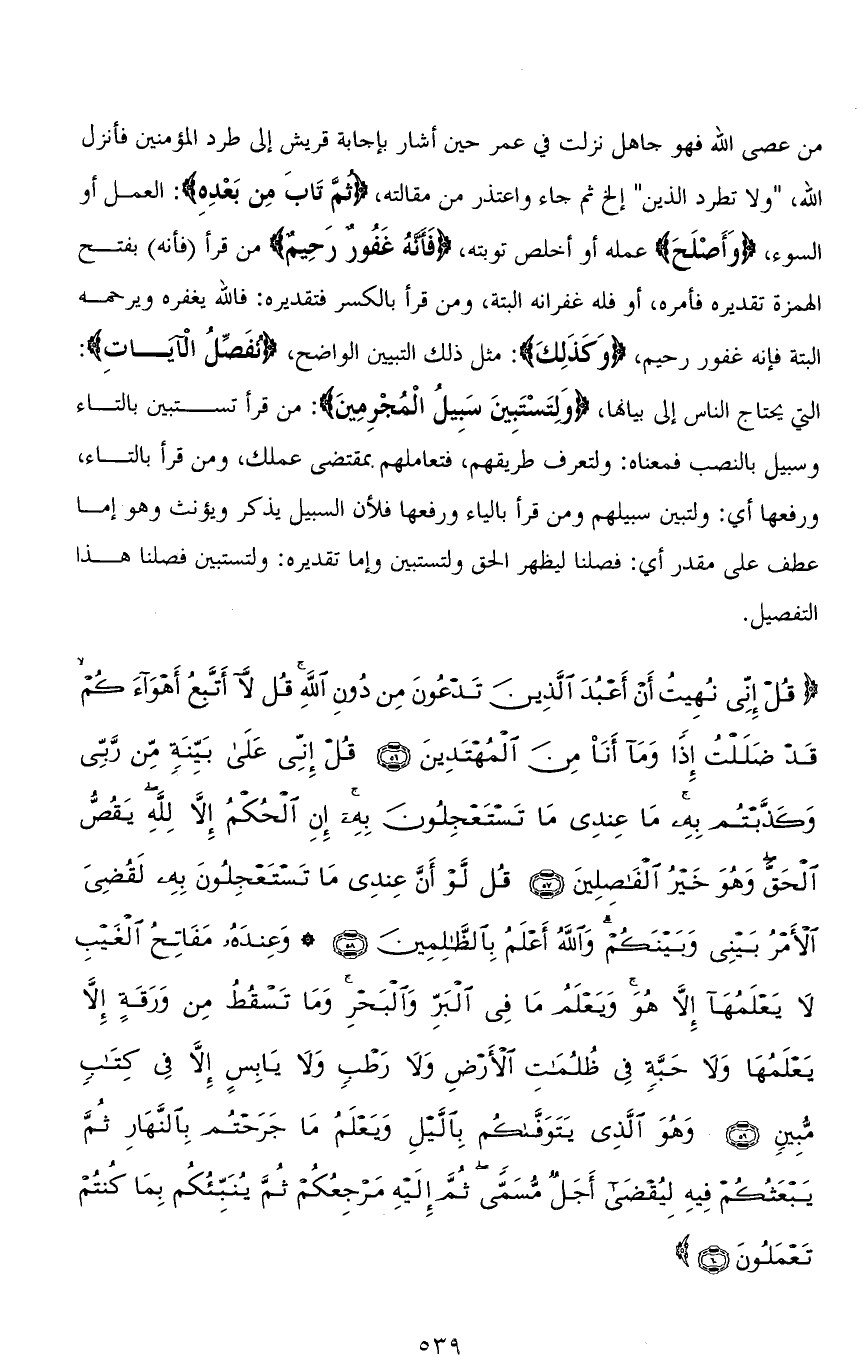 من عصى الله فهو جاهل نزلت في عمر حين أشار بإجابة قريش إلى طرد المؤمنين فأنزل
الله، "ولا تطرد الذين" إلخ ثم جاء واعتذر من مقالته، ﴿ثُمَّ تَابَ مِن بَعْدِهِ﴾: العمل أو
السوء، ﴿وَأَصْلَحَ﴾ عمله أو أخلص توبته، ﴿فَأَنَّهُ غَفُورٌ رَحِيمٌ﴾ من قرأ (فأنه) بفتح
الهمزة تقديره فأمره، أو فله غفرانه البتة، ومن قرأ بالكسر فتقديره: فالله يغفره ويرحمه
البتة فإنه غفور رحيم، ﴿وَكَذَلِكَ﴾: مثل ذلك التبيين الواضح، ﴿نُفَصِّلُ الْآيَاتِ﴾:
التي يحتاج الناس إلى بيانها، ﴿وَلِتَسْتَبِينَ سَبِيلُ الْمُجْرِمِينَ﴾: من قرأ تستبين بالتاء
وسبيل بالنصب فمعناه: ولتعرف طريقهم، فتعاملهم بمقتضى عملك، ومن قرأ بالتاء،
ورفعها أي: ولتبين سبيلهم ومن قرأ بالياء ورفعها فلأن السبيل يذكر ويؤنث وهو إما
عطف على مقدر أي: فصلنا ليظهر الحق ولتستبين وإما تقديره: ولتستبين فصلنا هذا
التفصيل.
﴿قُلْ إِنِّى نُهِيتُ أَنْ أَعْبُدَ ٱلَّذِينَ تَدْعُونَ مِن دُونِ ٱللَّهِۚ قُل لَّآ أَتَّبِعُ أَهْوَآءَكُمْۙ
قَدْ ضَلَلْتُ إِذًا وَمَآ أَنَا۠ مِنَ ٱلْمُهْتَدِينَ ٥٦ قُلْ إِنِّى عَلَىٰ بَيِّنَةٍ مِّن رَّبِّى
وَكَذَّبْتُم بِهِۦۚ مَا عِندِى مَا تَسْتَعْجِلُونَ بِهِۦٓۚ إِنِ ٱلْحُكْمُ إِلَّا لِلَّهِۖ يَقُصُّ
ٱلْحَقَّۖ وَهُوَ خَيْرُ ٱلْفَٰصِلِينَ ٥٧ قُل لَّوْ أَنَّ عِندِى مَا تَسْتَعْجِلُونَ بِهِۦ لَقُضِىَ
ٱلْأَمْرُ بَيْنِى وَبَيْنَكُمْۗ وَٱللَّهُ أَعْلَمُ بِٱلظَّٰلِمِينَ ٥٨ ۞ وَعِندَهُۥ مَفَاتِحُ ٱلْغَيْبِ
لَا يَعْلَمُهَآ إِلَّا هُوَۚ وَيَعْلَمُ مَا فِى ٱلْبَرِّ وَٱلْبَحْرِۚ وَمَا تَسْقُطُ مِن وَرَقَةٍ إِلَّا
يَعْلَمُهَا وَلَا حَبَّةٍ فِى ظُلُمَٰتِ ٱلْأَرْضِ وَلَا رَطْبٍ وَلَا يَابِسٍ إِلَّا فِى كِتَٰبٍ
مُّبِينٍ ٥٩ وَهُوَ ٱلَّذِى يَتَوَفَّىٰكُم بِٱلَّيْلِ وَيَعْلَمُ مَا جَرَحْتُم بِٱلنَّهَارِ ثُمَّ
يَبْعَثُكُمْ فِيهِ لِيُقْضَىٰٓ أَجَلٌ مُّسَمًّىۖ ثُمَّ إِلَيْهِ مَرْجِعُكُمْ ثُمَّ يُنَبِّئُكُم بِمَا كُنتُمْ
تَعْمَلُونَ ٦٠﴾
٥٣٩